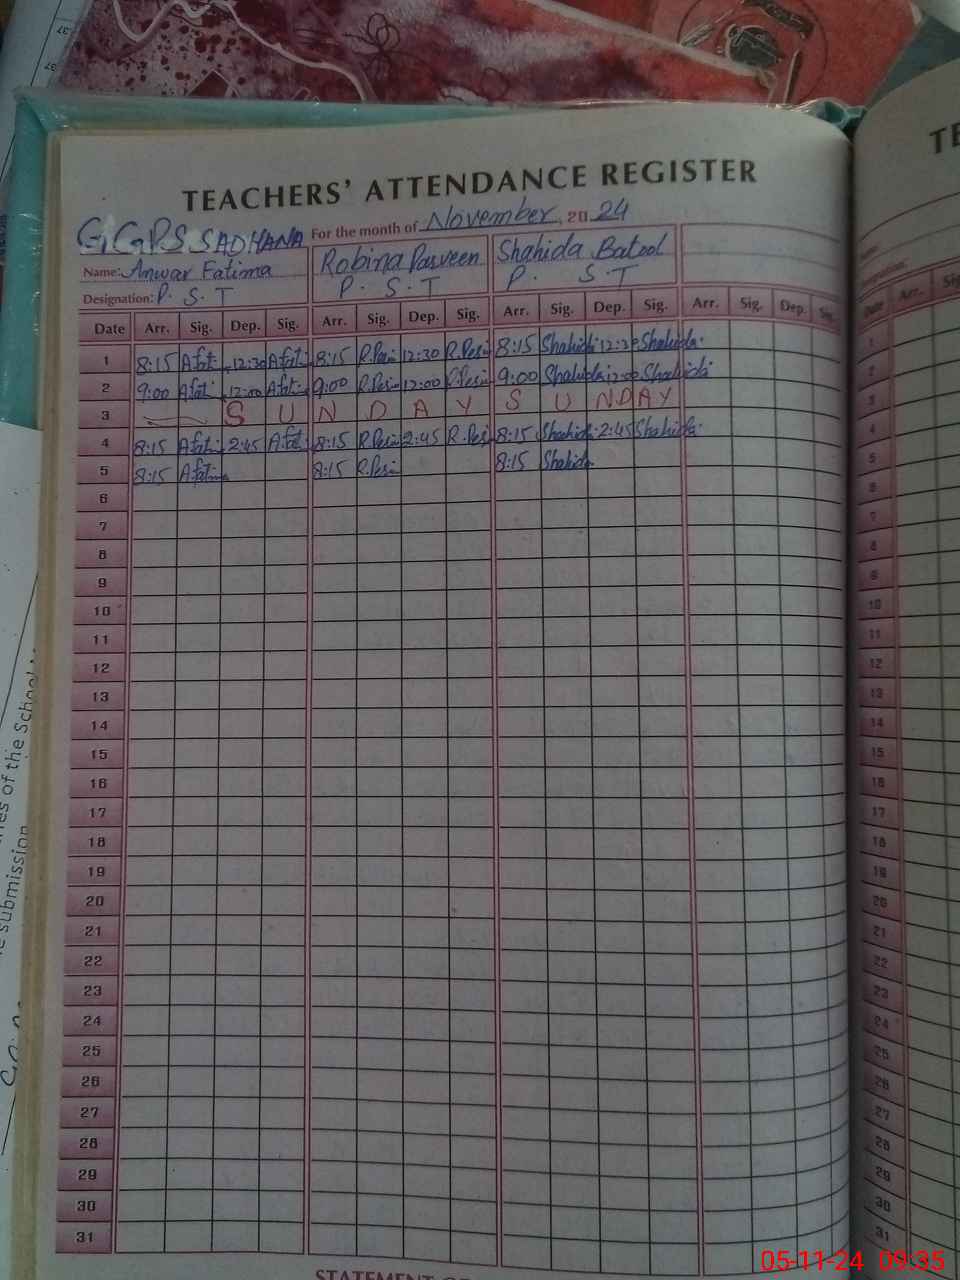 TEACHERS' ATTENDANCE REGISTER
G.G.P.S. SADHANA For the month of November, 20 24
Name: Anwar Fatima Robina Parveen Shahida Batool
Designation: P. S. T P. S. T P. S. T
Date Arr. Sig. Dep. Sig. Arr. Sig. Dep. Sig. Arr. Sig. Dep. Sig. Arr. Sig. Dep. Sig.
1 8:15 12:30 8:15 12:30 8:15 Shahida 12:30 Shahida
2 9:00 12:00 9:00 12:00 9:00 Shahida 12:00 Shahida
3 S U N D A Y S U N D A Y
4 8:15 2:45 8:15 2:45 8:15 Shahida 2:45 Shahida
5 8:15 A.fatima 8:15 8:15 Shahida
6
7
8
9
10
11
12
13
14
15
16
17
18
19
20
21
22
23
24
25
26
27
28
29
30
31
STATEMENT
TE
Date Arr.
1
2
3
4
5
6
7
8
9
10
11
12
13
14
15
16
17
18
19
20
21
22
23
24
25
26
27
28
29
30
31
of the School
submission
05-11-24 09:35